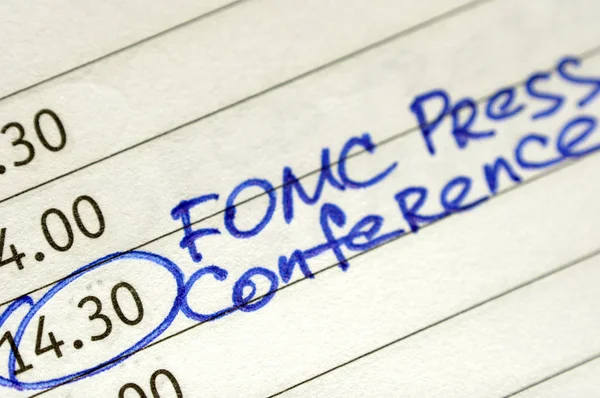 .30
4.00
14.30 FOMC Press
Conference
00